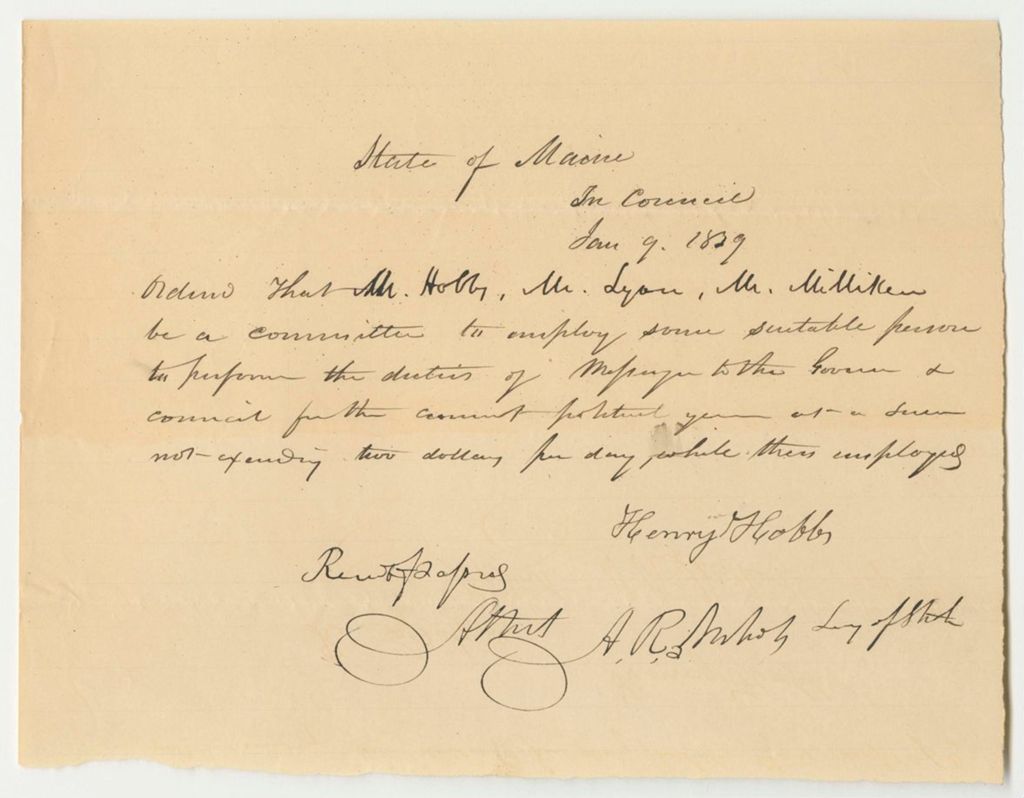 State of Maine
In Council
Jan 9. 1839
Ordered That Mr. Hobbs, Mr. Lyon, Mr. Milliken
be a committee to employ some suitable person
to perform the duties of Messenger to the Governor &
council for the current political year at a sum
not exceeding two dollars per day, while thus employed
Henry Hobbs
Read & passed
Attest A. R. Nichols Secy of State